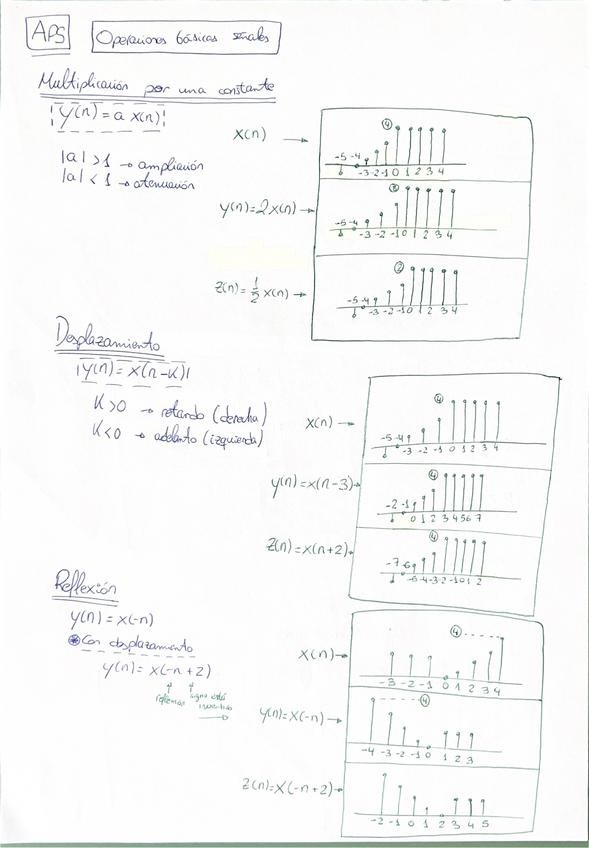 APS
Operaciones básicas señales
Multiplicación por una constante
y(n) = a x(n)
|a| > 1 → ampliación
|a| < 1 → atenuación
x(n) →
④
-5 -4 -3 -2 -1 0 1 2 3 4
y(n)=2x(n) →
⑧
-5 -4 -3 -2 -1 0 1 2 3 4
z(n)=1/2 x(n) →
②
-5 -4 -3 -2 -1 0 1 2 3 4
Desplazamiento
y(n) = x(n-K)
K>0 → retardo (derecha)
K<0 → adelanto (izquierda)
x(n) →
④
-5 -4 -3 -2 -1 0 1 2 3 4
y(n)=x(n-3) →
④
-2 -1 0 1 2 3 4 5 6 7
z(n)=x(n+2) →
④
-7 -6 -5 -4 -3 -2 -1 0 1 2
Reflexión
y(n) = x(-n)
Con desplazamiento
y(n) = x(-n+2)
reflexión
signo está invertido
x(n) →
④
-3 -2 -1 0 1 2 3 4
y(n)=x(-n) →
④
-4 -3 -2 -1 0 1 2 3
z(n)=x(-n+2) →
-2 -1 0 1 2 3 4 5